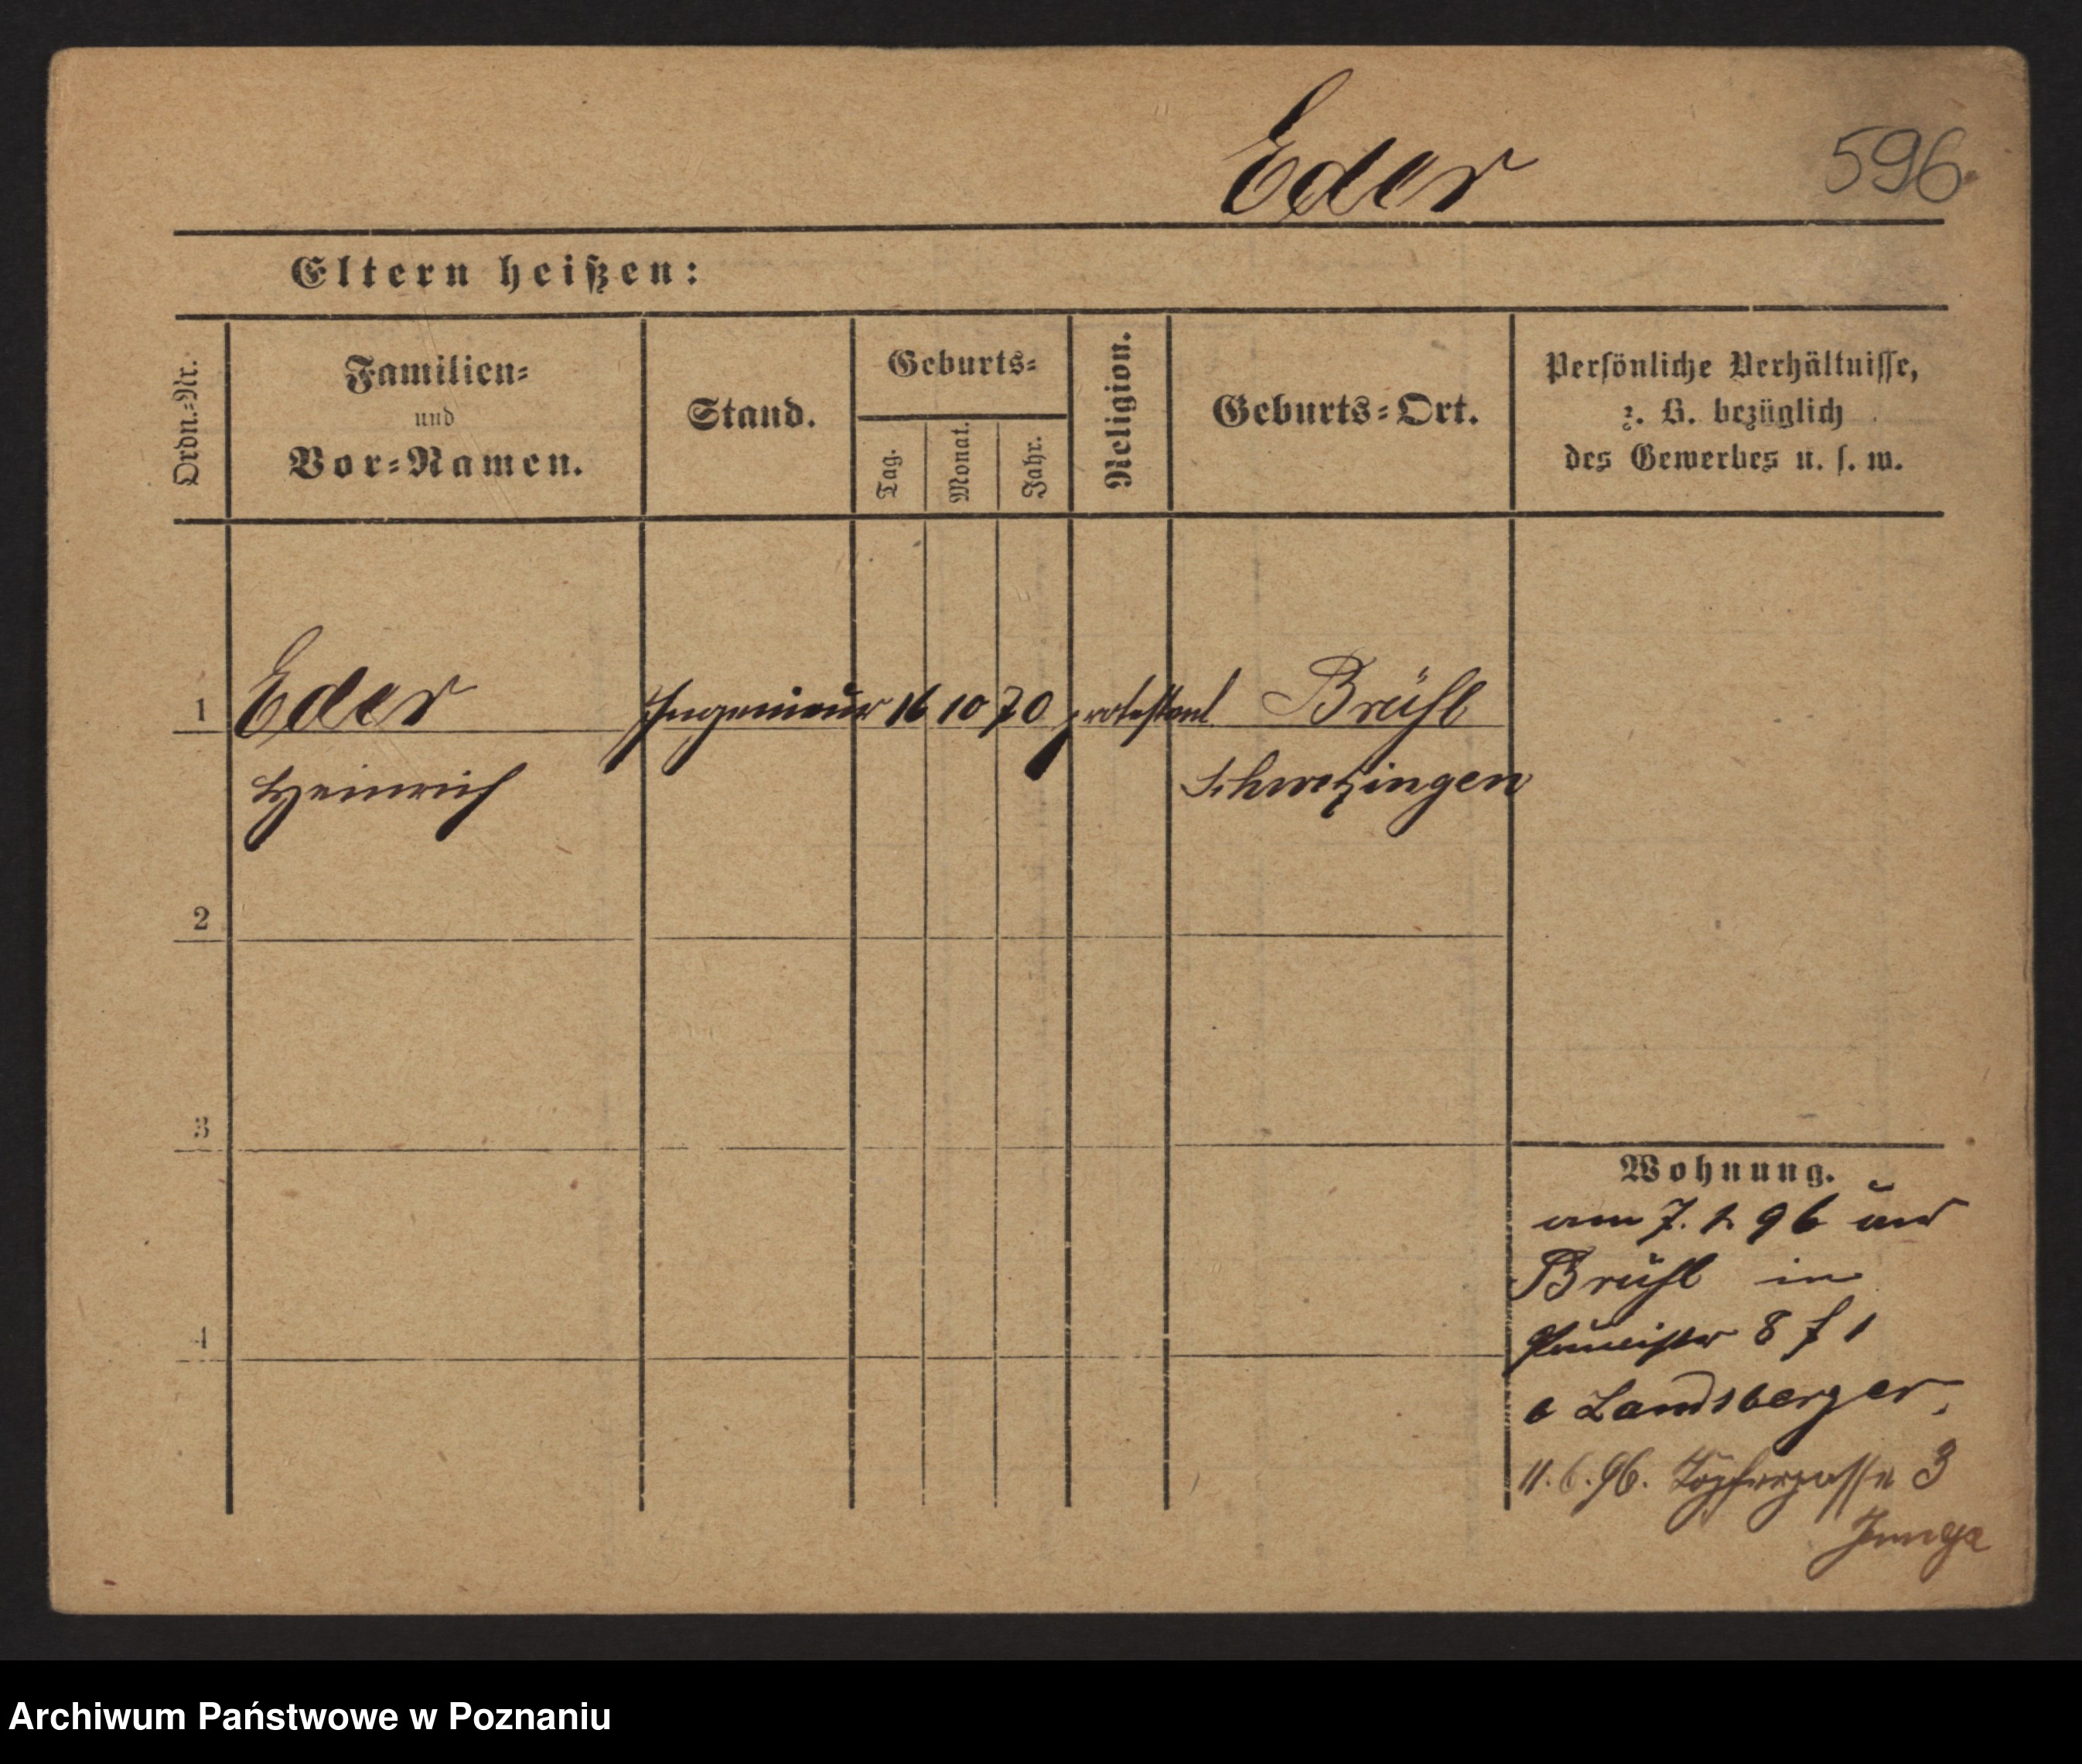 Eder
596
Eltern heißen:
Ordn.-Nr.
Familien-
und
Vor-Namen.
Stand.
Geburts-
Tag.
Monat.
Jahr.
Religion.
Geburts-Ort.
Persönliche Verhältnisse,
z. B. bezüglich
des Gewerbes u. s. w.
1 Eder Ingenieur 16 10 70 protestant Brühl
Heinrich Schwetzingen
2
3
4
Wohnung.
am 7. 96
Brühl in
8 1
Landsberger
11.6.96. Töpfergasse 3
Junga
Archiwum Państwowe w Poznaniu